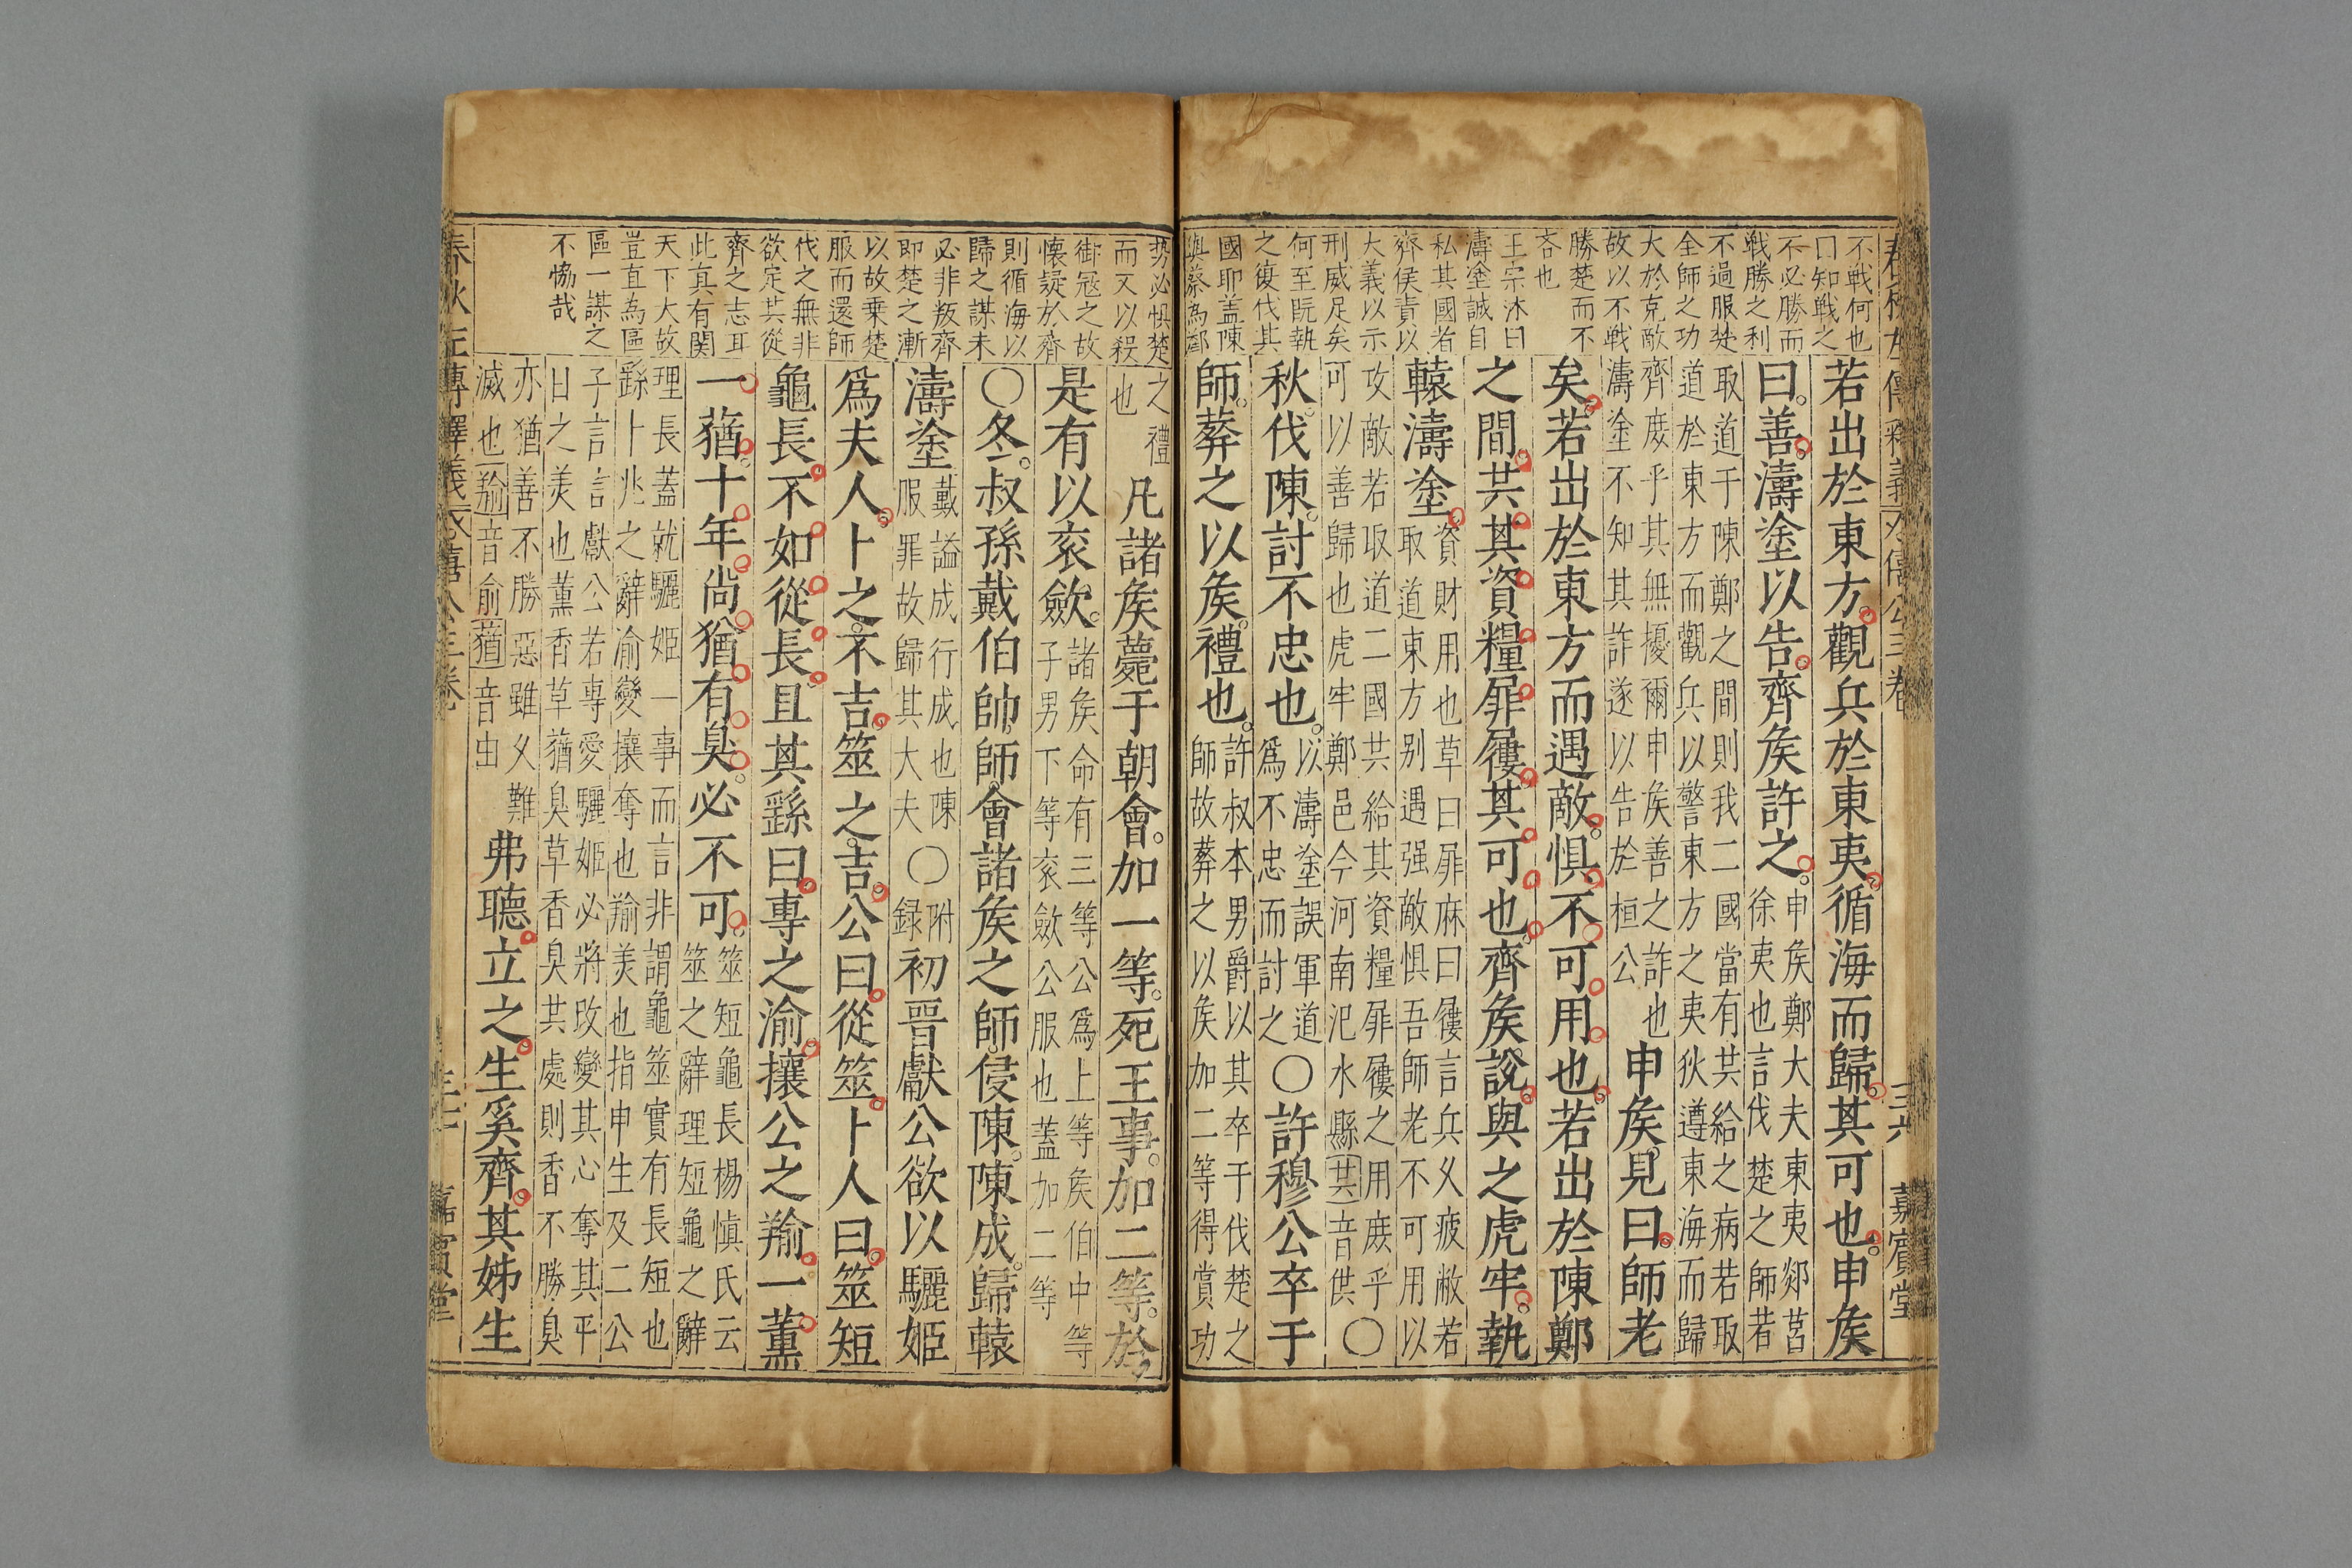 不戰何也
曰知戰之
不必勝而
戰勝之利
不過服楚
全師之功
大於克敵
故以不戰
勝楚而不
吝也
王宗沐曰
濤塗誠自
私其國者
齊侯責以
大義以示
刑威足矣
何至既執
之復伐其
國耶盖陳
與蔡為鄰
若出於東方。觀兵於東夷。循海而歸。其可也。申矦
曰。善。濤塗以告。齊矦許之。
申矦鄭大夫東夷郯莒
徐夷也言伐楚之師若
取道于陳鄭之間則我二國當有共給之病若取
道於東方而觀兵以警東方之夷狄遵東海而歸
齊庶乎其無擾爾申矦善之詐也
濤塗不知其詐遂以告於桓公
申矦見曰。師老
矣。若出於東方而遇敵。惧不可用也。若出於陳鄭
之間。共其資糧屝屨。其可也。齊矦說。與之虎牢。執
轅濤塗。
資財用也草曰屝麻曰屨言兵乂疲敝若
取道東方別遇强敵惧吾師老不可用以
攻敵若取道二國共給其資糧屝屨之用庶乎
可以善歸也虎牢鄭邑今河南汜水縣共音供
〇
秋。伐陳。討不忠也。
以濤塗誤軍道
為不忠而討之
〇許穆公卒于
師。葬之以矦。禮也。
許叔本男爵以其卒于伐楚之
師故葬之以矦加二等得賞功
春秋左傳釋義 僖公三卷 三六 嘉賓堂
勢必惧楚
而又以殺
御寇之故
懷疑於齊
則循海以
歸之謀未
必非叛齊
即楚之漸
以故乗楚
服而還師
伐之無非
欲定其從
齊之志耳
此真有関
天下大故
豈直為區
區一謀之
不恊哉
之禮
也
凡諸矦薨于朝會。加一等。死王事。加二等。於
是有以衮斂。
諸矦命有三等公爲上等矦伯中等
子男下等衮斂公服也蓋加二等
〇冬。叔孫戴伯帥師。會諸矦之師。侵陳。陳成。歸轅
濤塗
戴謚成行成也陳
服罪故歸其大夫
〇
附
録
初晋獻公欲以驪姬
爲夫人。卜之。不吉。筮之。吉。公曰。從筮。卜人曰。筮短
龜長。不如從長。且其繇曰。專之渝。攘公之羭。一薫
一。蕕。十年。尚。猶有臭。必不可。
筮短龜長楊愼氏云
筮之辭理短龜之辭
理長蓋就驪姬一事而言非謂龜筮實有長短也
繇卜兆之辭渝變攘奪也羭美也指申生及二公
子言言獻公若專愛驪姬必將攺變其心奪其平
日之美也薫香草蕕臭草香臭其處則香不勝臭
亦猶善不勝惡雖乂難
滅也羭音俞蕕音由
弗聽。立之。生奚齊。其姊生
春秋左傳釋義 僖公三卷 嘉賓堂